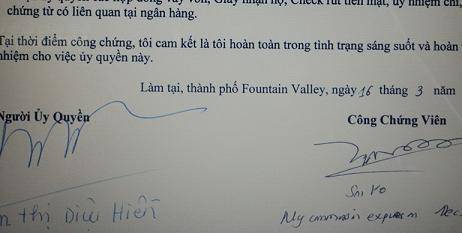 chứng từ có liên quan tại ngân hàng.
Tại thời điểm công chứng, tôi cam kết là tôi hoàn toàn trong tình trạng sáng suốt và hoàn
nhiệm cho việc ủy quyền này.
Làm tại, thành phố Fountain Valley, ngày 16 tháng 3 năm
Người Ủy Quyền Công Chứng Viên
Thị Diệu Hiền
My commission expires